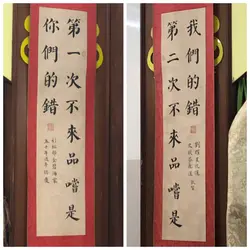 第一次不來品嚐是
你們的錯
第二次不來品嚐是
我們的錯